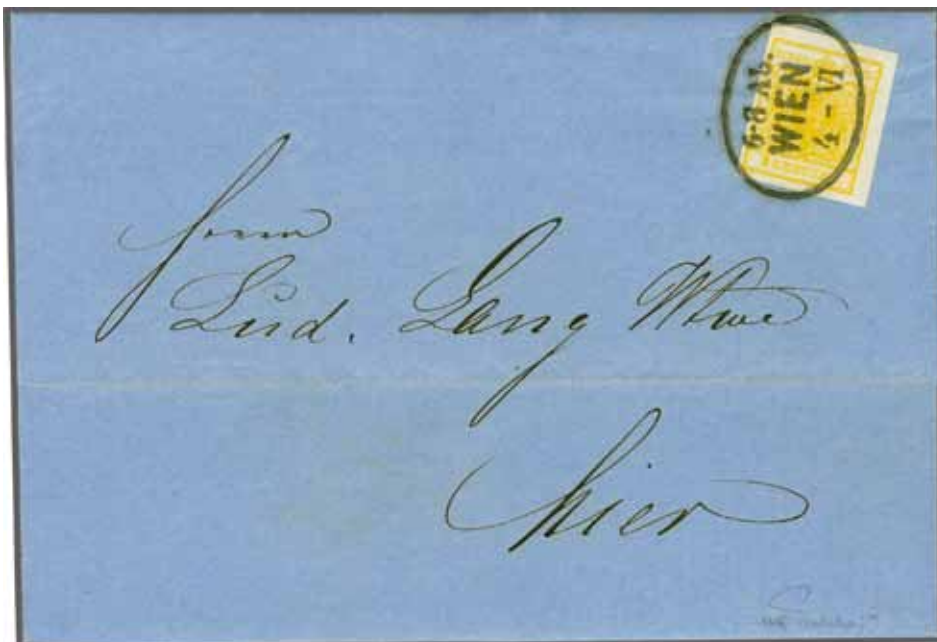 6-8 Ab.
WIEN
4 - VI
Herrn
Lud. Lang Wtwe
hier